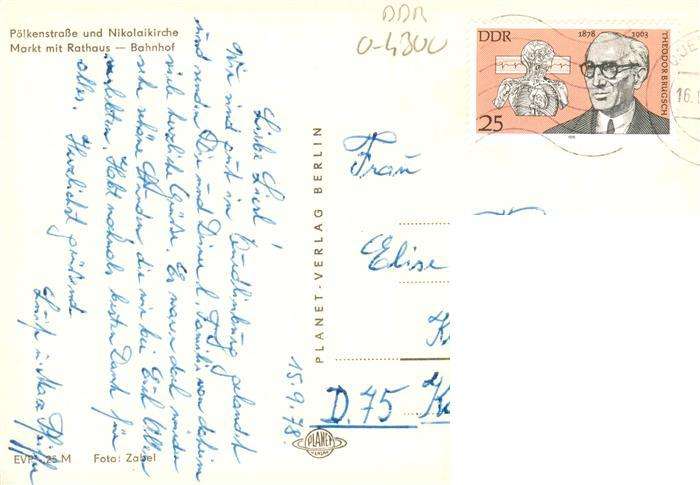 Pölkenstraße und Nikolaikirche
Markt mit Rathaus — Bahnhof
DDR
0-4300
DDR
1878
1963
THEODOR BRUGSCH
25
16.
Liebe Liesl!
Wir sind gut in Quedlinburg gelandet
und senden Dir und Deiner l. Familie von daheim
viele herzliche Grüße. Es waren doch wieder
sehr schöne Stunden die wir bei Euch
Habt nochmals besten Dank für
alles. Herzlichst grüßend
15.9.78
PLANET-VERLAG BERLIN
Frau
Elise
D.75
PLANET
VERLAG
EVP -,25 M
Foto: Zabel